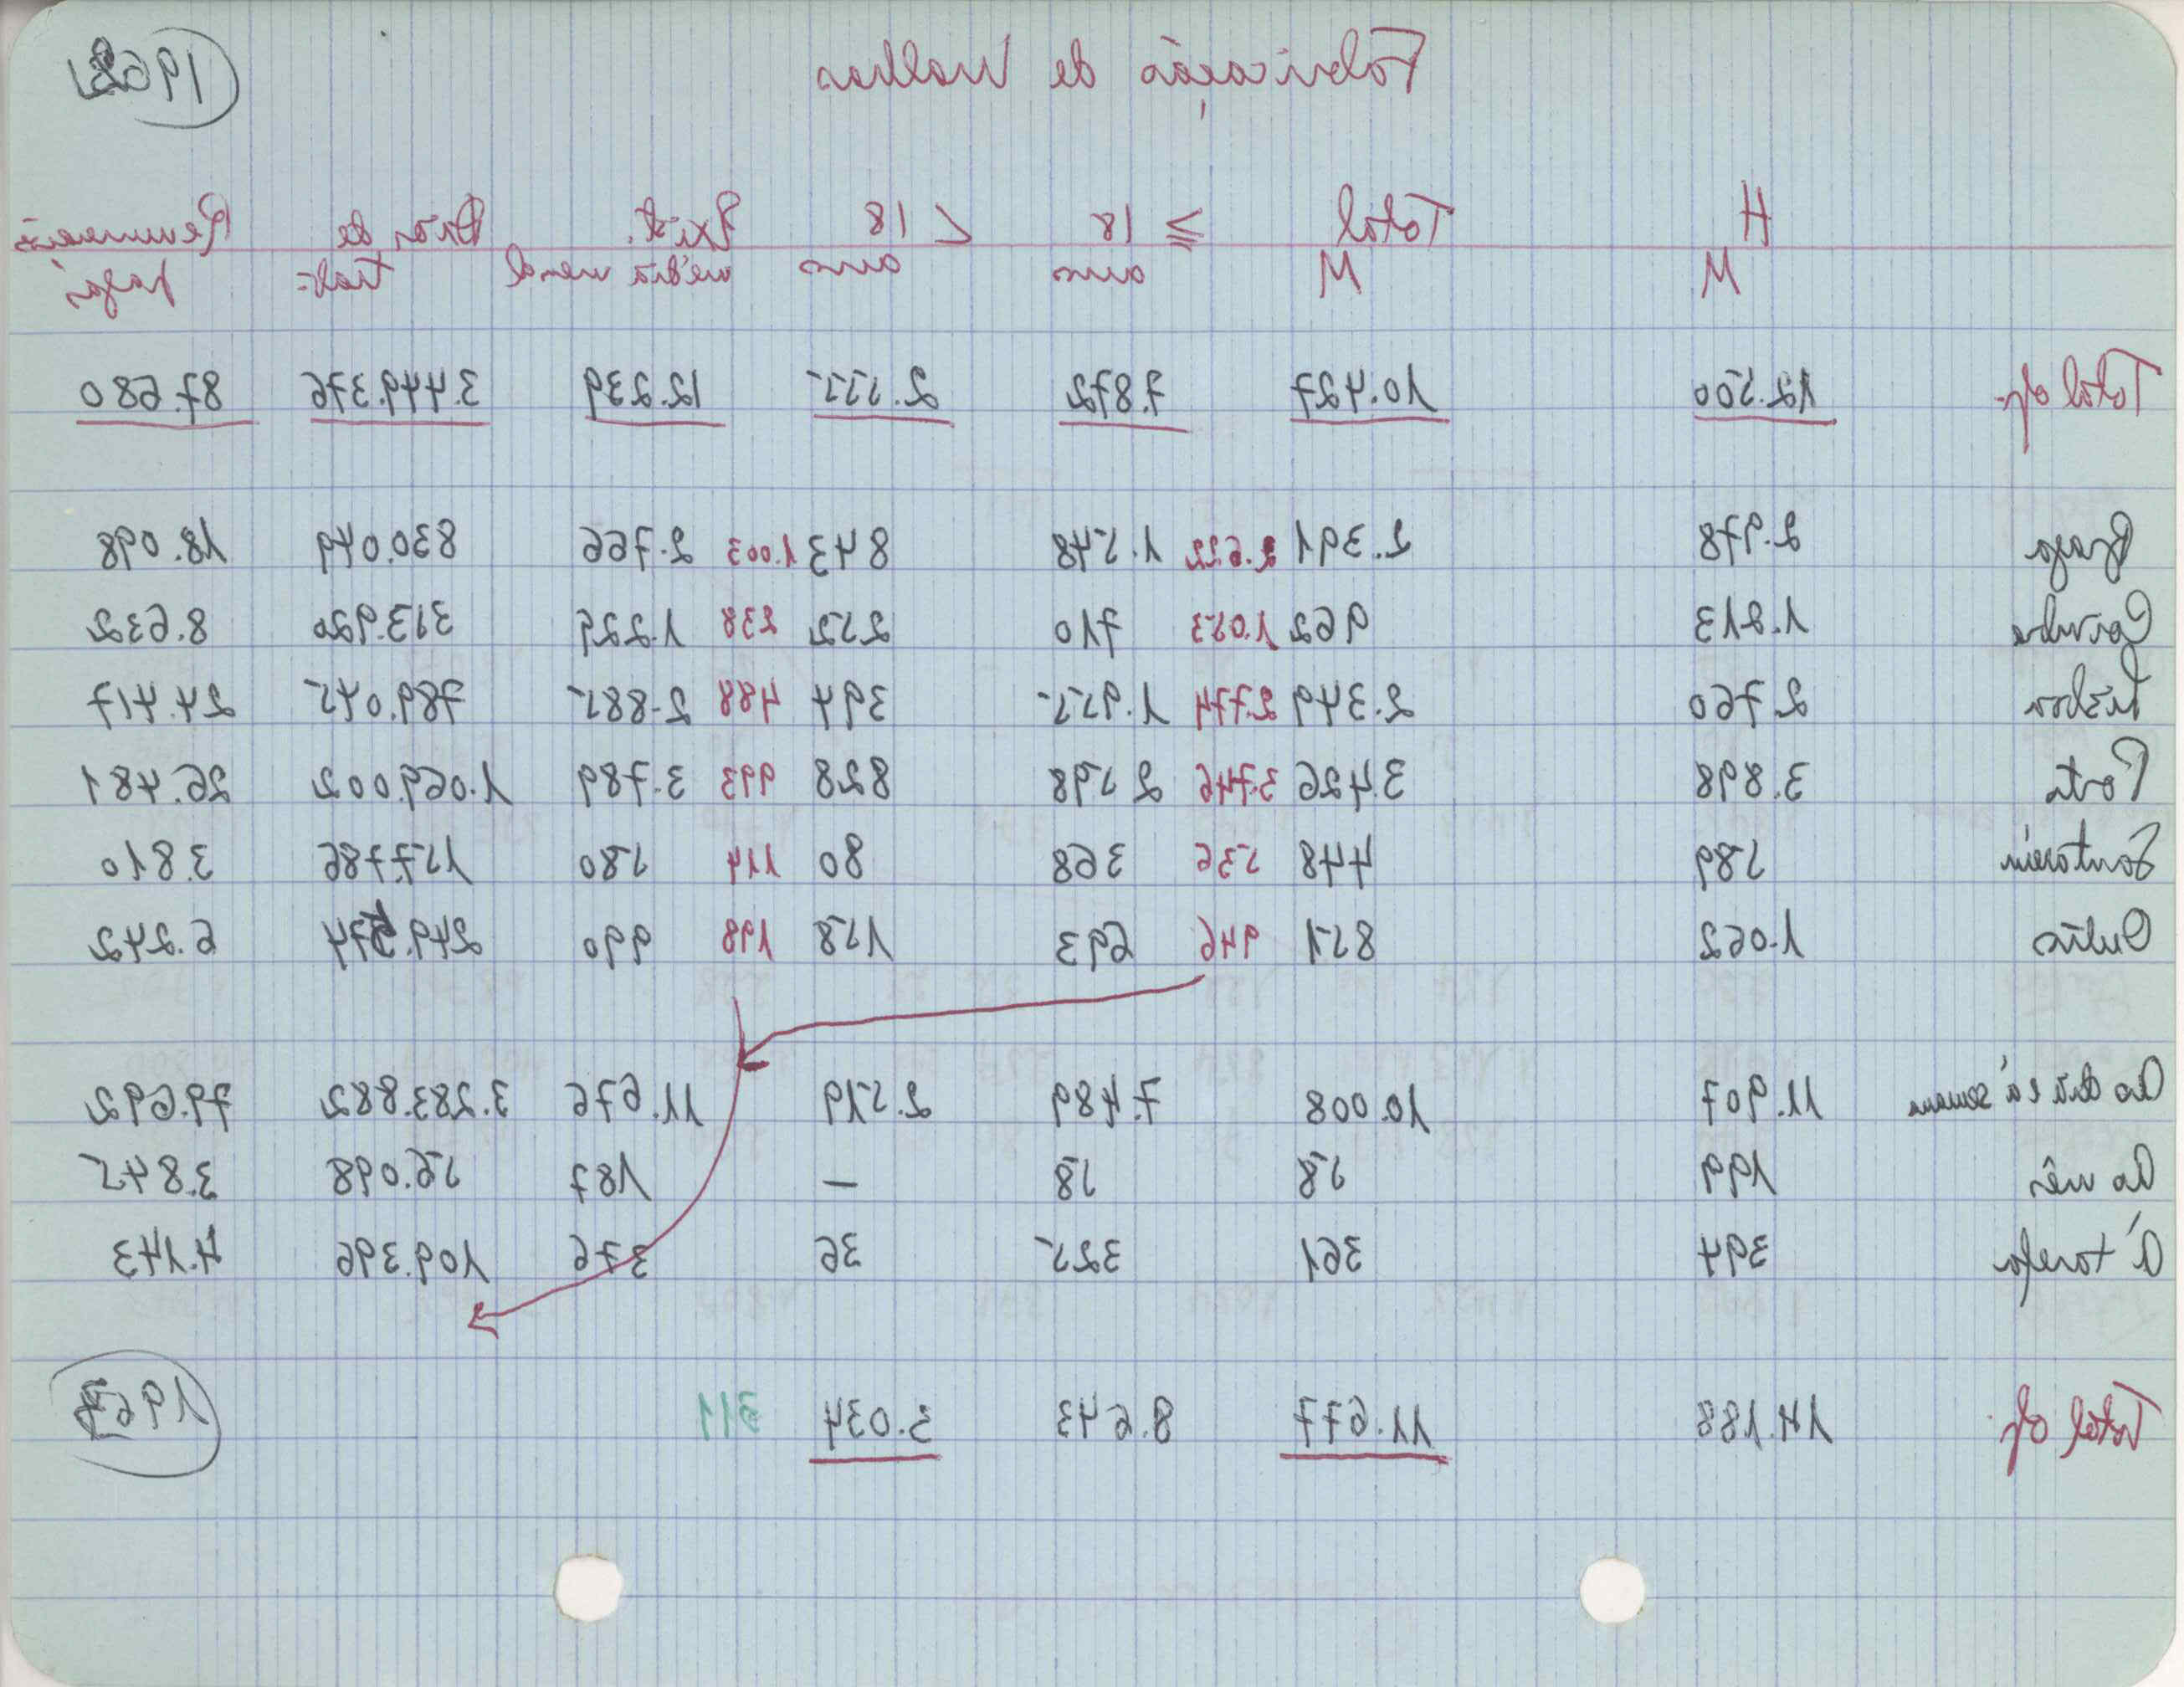 Fabricação de Malhas 1962
HM Total M ≥ 18 anos < 18 anos Exist. média mensal Dias de trab. Remunerações pagas
Total op. 12.500 10.427 7.872 2.555 12.239 3.449.376 87.680
Braga 2.978 2.391 2.622 1.548 843 1.003 2.766 830.049 18.098
Coimbra 1.213 962 1.053 710 252 238 1.229 353.920 8.632
Lisboa 2.760 2.349 2.774 1.955 394 488 2.885 789.045 24.417
Porto 3.898 3.426 3.746 2.598 828 993 3.789 1.069.002 26.481
Santarém 589 448 536 368 80 114 580 157.786 3.810
Outros 1.062 851 946 693 158 198 990 249.574 6.242
Ao dia e à semana 11.907 10.008 7.489 2.519 11.676 3.283.882 79.692
Ao mês 199 58 58 — 187 56.098 3.845
À tarefa 394 361 325 36 376 109.396 4.143
Total op. 14.188 11.677 8.643 3.034 311 1967